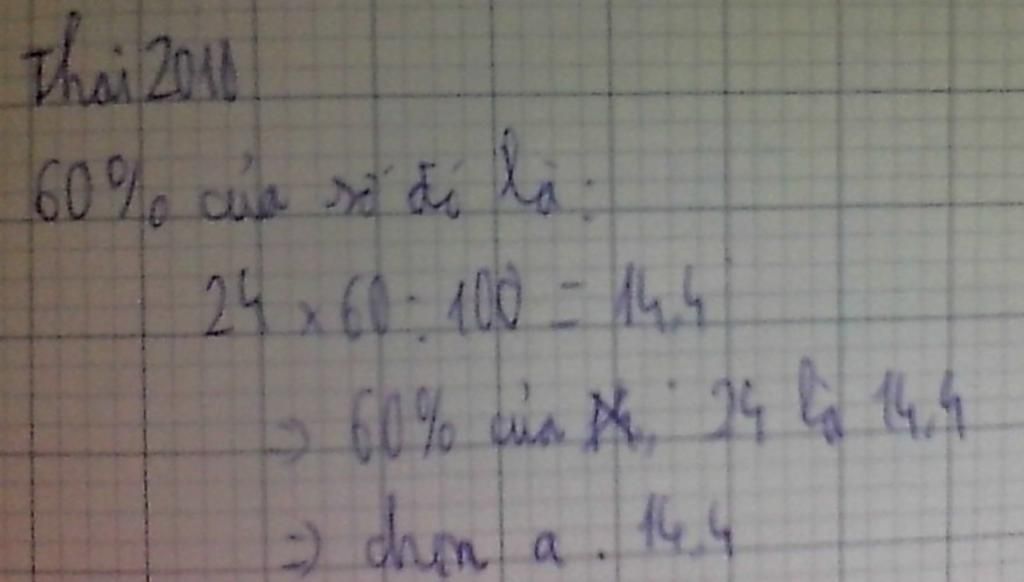 Thai 2011
60% của số đó là:
24 x 60 : 100 = 14.4
=> 60% của 24 là 14.4
=> chọn a. 14.4